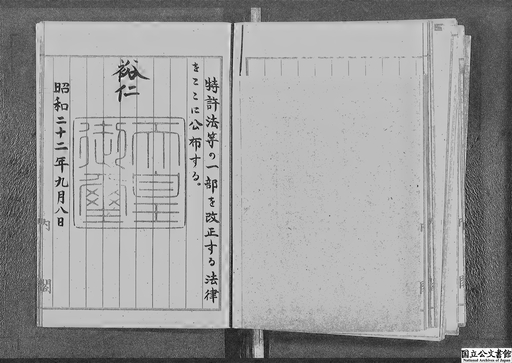 特許法等の一部を改正する法律
をここに公布する。
裕仁
天皇
御璽
昭和二十二年九月八日
内閣
国立公文書館
National Archives of Japan